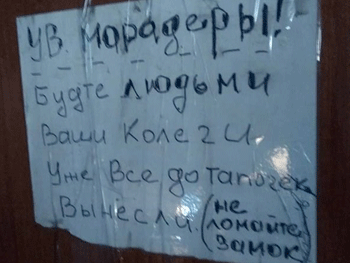 ув. мородеры!
Будте людьми
Ваши Колеги
Уже Все до тапочек
Вынесли (не
ломайте
замок)